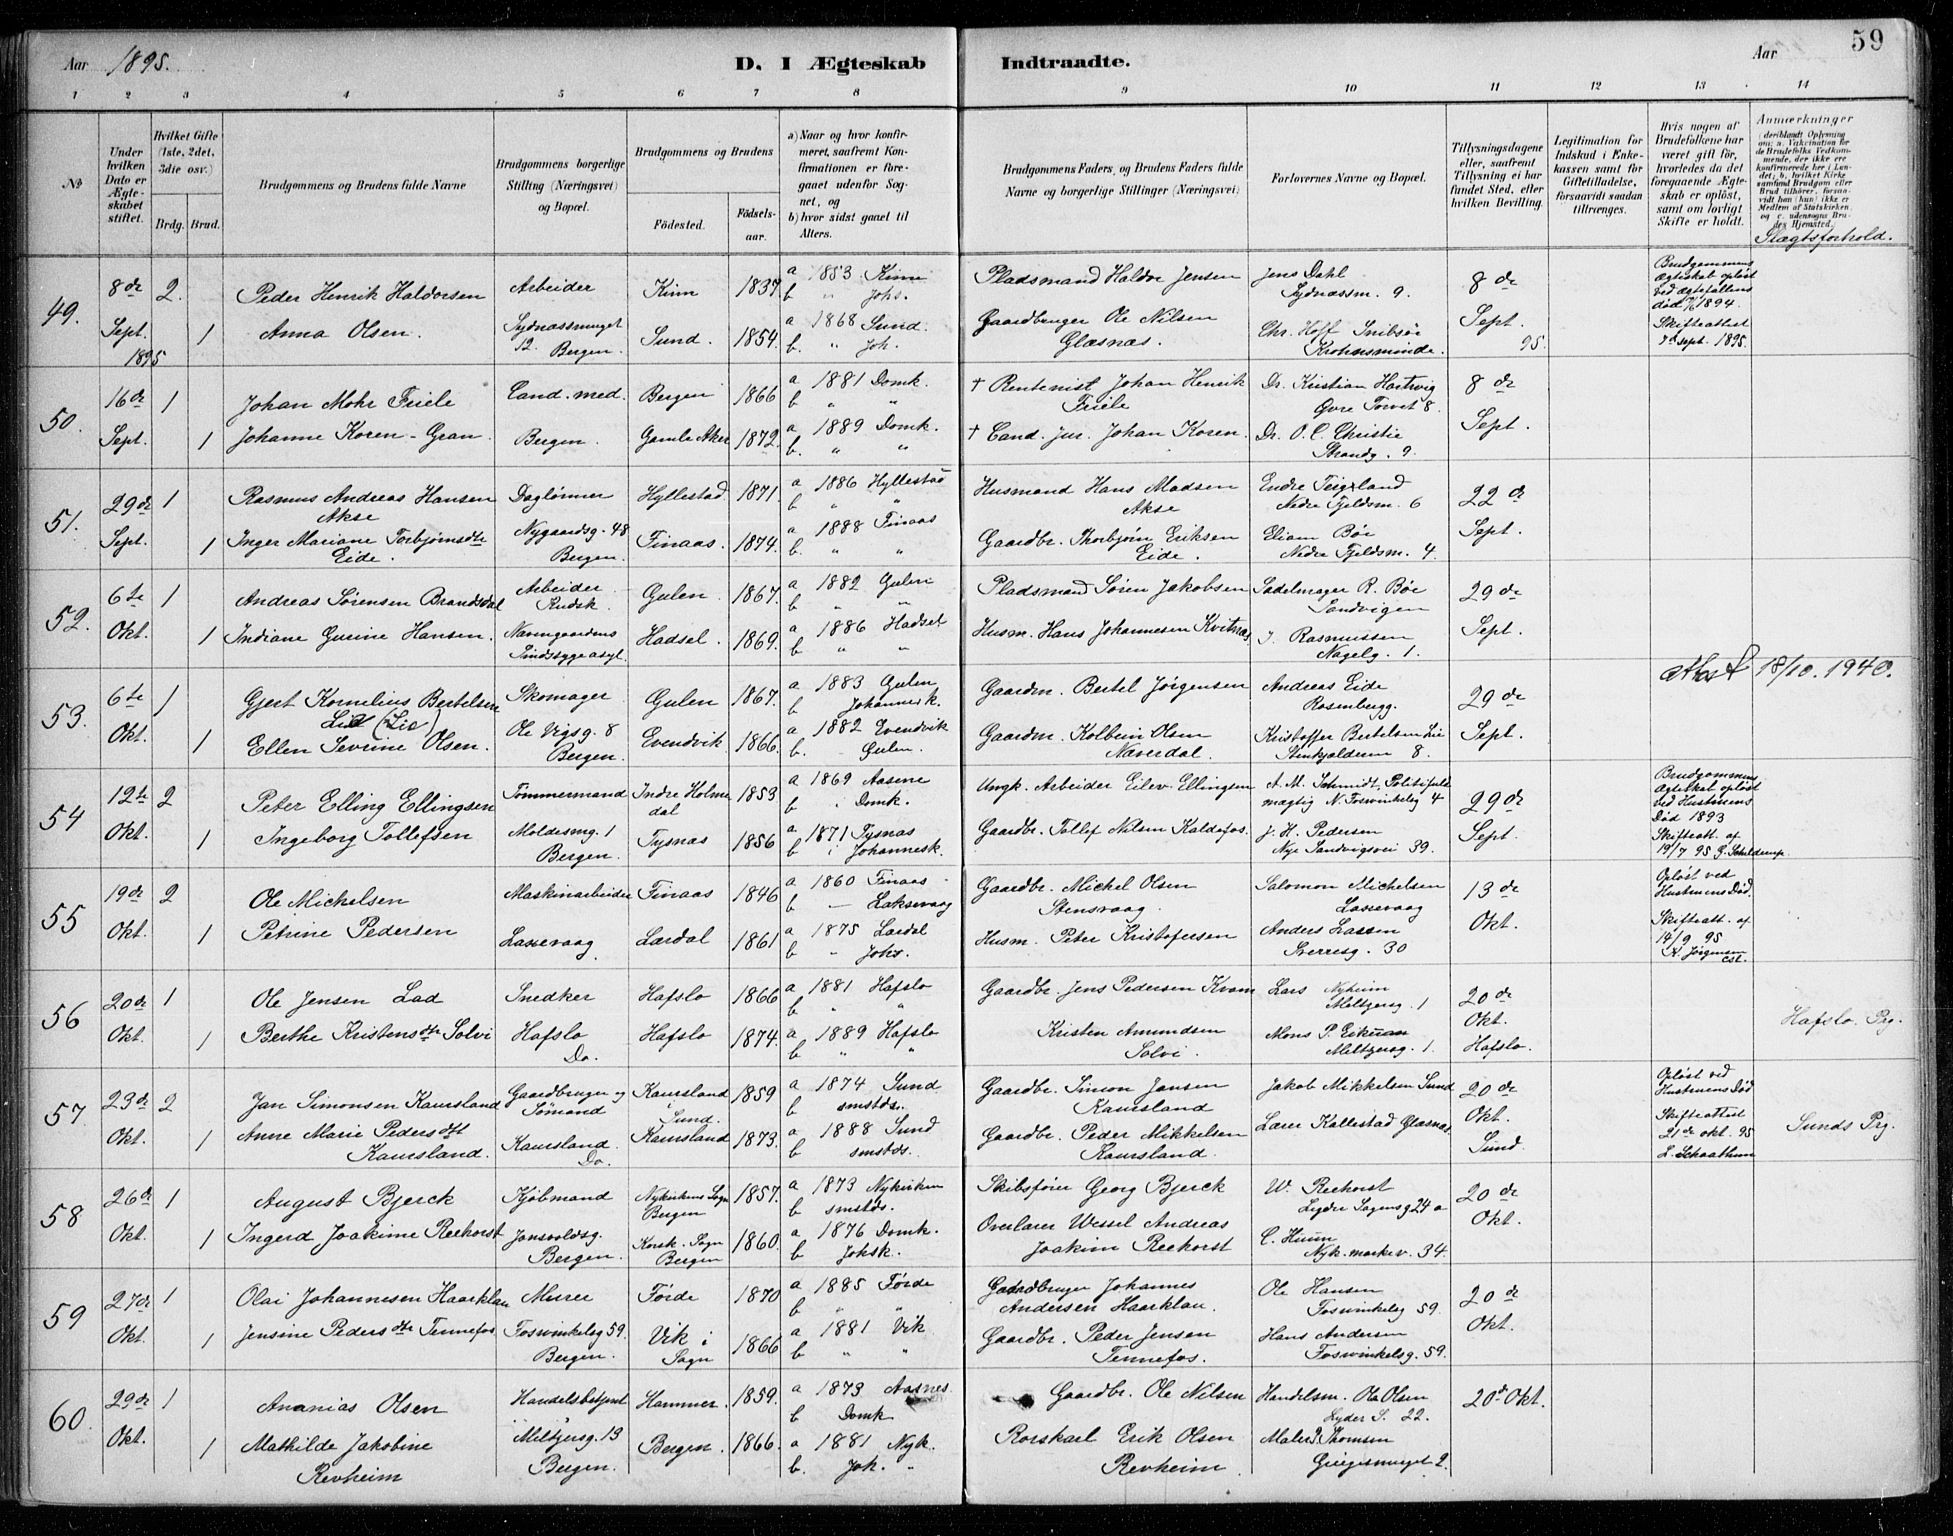 Aar 1895.
D. I Ægteskab Indtraadte.
Aar
59
1 2 3 4 5 6 7 8 9 10 11 12 13 14
No
Under hvilken Dato er Ægteskabet stiftet.
Hvilket Gifte (1ste, 2det, 3die osv.)
Brdg. Brud.
Brudgommens og Brudens fulde Navne
Brudgommens borgerlige Stilling (Næringsvei) og Bopæl.
Brudgommens og Brudens
Fødested.
Fødselsaar.
a) Naar og hvor konfirmeret, saafremt Konfirmationen er foregaaet udenfor Sognet, og
b) hvor sidst gaaet til Alters.
Brudgommens Faders, og Brudens Faders fulde Navne og borgerlige Stillinger (Næringsvei)
Forlovernes Navne og Bopæl.
Tillysningsdagene eller, saafremt Tillysning ei har fundet Sted, efter hvilken Bevilling.
Legitimation for Indskud i Enkekassen samt for Giftetilladelse, forsaavidt saadan tiltrænges.
Hvis nogen af Brudefolkene har været gift, hvorledes da det foregaaende Ægteskab er opløst, samt om lovligt Skifte er holdt.
Anmærkninger
Slægtsforhold.
49. 8de Sept. 1895 2 1
Peder Henrik Haldorsen
Anna Olsen.
Arbeider
Sydnæssmuget 12. Bergen.
Kinn 1837
Sund. 1854
a 1853 Kinn
b " Johs.
a 1868 Sund.
b. " Joh.
Pladsmand Haldor Jensen
Gaardbruger Ole Nilsen
Glæsnæs.
Jens Dahl
Sydnæssm. 9.
Chr. Hoff Snibsøe
Krohnsminde.
8de Sept. 95.
Brudgommens
ægteskab opløst
ved ægtefællens
død 1894.
Skifteattest
sept. 1895.
50. 16de Sept. 1 1
Johan Mohr Friele
Johanne Koren-Gran
Cand. med.
Bergen.
Bergen 1866
Gamle Aker 1872.
a 1881 Domk.
b " "
a 1889 Domk.
b. " "
+ Rentenist Johan Henrik
Friele
+ Cand. jur. Johan Koren.
Dr. Kristian Hartvig
Øvre Torvet 8.
Dr. O. C. Christie
Strandg. 9.
8de Sept.
51. 29de Sept. 1 1
Rasmus Andreas Hansen
Akse
Inger Mariane Torbjørnsdtr
Eide.
Daglønner
Nygaardsg. 48
Bergen.
Hyllestad 1871
Finaas. 1874.
a 1886 Hyllestad
b " "
a 1888 Finaas
b. " "
Husmand Hans Madsen
Akse
Gaardbr. Thorbjørn Eriksen
Eide.
Endre Teigland
Nedre Fjeldsm. 6
Eliam Bøe
Nedre Fjeldsm. 4.
22de Sept.
52. 6te Okt. 1 1
Andreas Sørensen Brandsdal
Indiane Gurine Hansen.
Arbeider
Kudsk.
Neevengaardens
Sindssygeasyl.
Gulen. 1867.
Hadsel. 1869.
a 1882 Gulen
b " "
a 1886 Hadsel
b " "
Pladsmand Søren Jakobsen
Husm. Hans Johannesen Kvitnæs
Sadelmager R. Bøe
Sandvigen
J. Rasmussen
Nagelg. 1.
29de Sept.
53. 6te Okt. 1 1
Gjert Kornelius Bertelsen
Lid (Lie)
Ellen Sevrine Olsen.
Skomager
Ole Vigsg. 8
Bergen.
Gulen 1867.
Evendvik 1866.
a 1883 Gulen
b Johannesk.
a 1882 Evendvik
b. - Gulen.
Gaardm. Bertel Jørgensen
Gaardm. Kolbein Olsen
Næverdal
Andreas Eide
Rosenbergg.
Kristoffer Bertelsen Lie
Stenkjelderen 8.
29de Sept.
Attest 18/10.1940.
54 12te Okt. 2 1
Peter Elling Ellingsen
Ingeborg Tollefsen
Tømmermand
Moldesmg. 1
Bergen.
Indre Holmedal 1853
Tysnæs 1856
a 1869 Aasene
b i Domk.
a 1871 Tysnæs
b i Johannesk.
Ungk. Arbeider Eilev Ellingsen
Gaardbr. Tollef Nilsen Kaldafos.
A. M. Schmidt, Politifuldmægtig N. Fosvinkelsg 4
J. H. Pedersen
Nye Sandvigsvei 39.
29de Sept.
Brudgommens
Ægteskab opløst
ved Hustruens
Død 1893
Skifteatt. af
19/7 95
55 19de Okt. 2 1
Ole Michelsen
Petrine Pedersen
Maskinarbeider
Laxevaag
Finaas 1846
Lærdal 1861
a 1860 Finaas
b — Laksevaag
a 1875 Lærdal
b " Johs.
Gaardbr. Michel Olsen
Stensvaag.
Husm. Peter Kristofersen
Salomon Michelsen
Laxevaag
Anders Lassen
Sverresg. 30
13de Okt.
Opløst ved
Hustruens Død.
Skifteatt. af
14/9 95
Jørgensen
56 20de Okt. 1 1
Ole Jensen Lad
Berthe Kristensdtr Solvi
Snedker
Hafslo
Do.
Hafslo 1866
Hafslo 1874.
a 1881 Hafslo
b " "
a 1889 Hafslo
b " "
Gaardbr. Jens Pedersen Kvam
Kristen Amundsen
Solvi
Lars Nyheim
Meltzersg. 1
Mons P. Eikum
Meltzersg. 1.
20de Okt. Hafslo.
Hafslo Prg.
57 23de Okt. 2 1
Jan Simonsen Kausland
Anne Marie Pedersdtr
Kausland.
Gaardbruger og
Sømand
Kausland.
Do.
Kausland i Sund. 1859
Kausland 1873.
a 1874 Sund
b smstds.
a 1888 Sund
b smstds.
Gaardbr. Simon Jansen
Kausland
Gaardbr. Peder Mikkelsen
Kausland.
Jakob Mikkelsen Sund
Lærer Kallestad Glæsnæs
20de Okt. Sund.
Opløst ved
Hustruens Død
Skifteattest
21de okt. 95
Sunds Prg.
58 26de Okt. 1 1
August Bjerck
Ingerd Joakime Reehorst
Kjøbmand
Jonsvoldsg.
Bergen.
Nykirkens Sogn Bergen 1857.
Korsk. Sogn Bergen 1860.
a 1873 Nykirken
b smstds.
a 1876 Domk.
b Johsk.
Skibsfører Georg Bjerck
Overlærer Wessel Andreas
Joakim Reehorst
W. Reehorst
Lyder Sagensg 24 a
C. Huun
Nyk. markev. 34.
20de Okt.
59 27de Okt. 1 1
Olai Johannesen Haarklau
Jensine Pedersdtr Tennefos
Murer
Fosvinkelsg 59.
Bergen.
Førde 1870
Vik i Sogn 1866
a 1885 Førde
b " "
a 1881 Vik
b " "
Gaardbruger Johannes
Andersen Haarklau.
Gaardbr. Peder Jensen
Tennefos.
Ole Hansen
Fosvinkelsg 59.
Hans Andersen
Fosvinkelsg. 59.
20de Okt.
60. 29de Okt. 1 1
Ananias Olsen
Mathilde Jakobine
Revheim
Handelsbetjent
Meltzersg. 13
Bergen.
Hammer. 1859.
Bergen. 1866.
a 1873 Aasnes.
b Domk
a 1881 Nyk.
b. Joh. "
Gaardbr. Ole Nilsen
Rorskarl Erik Olsen
Revheim
Handelsm. Ole Olsen
Lyder S. 22.
Maler Thomsen
Griegsmuget 2.
20de Okt.